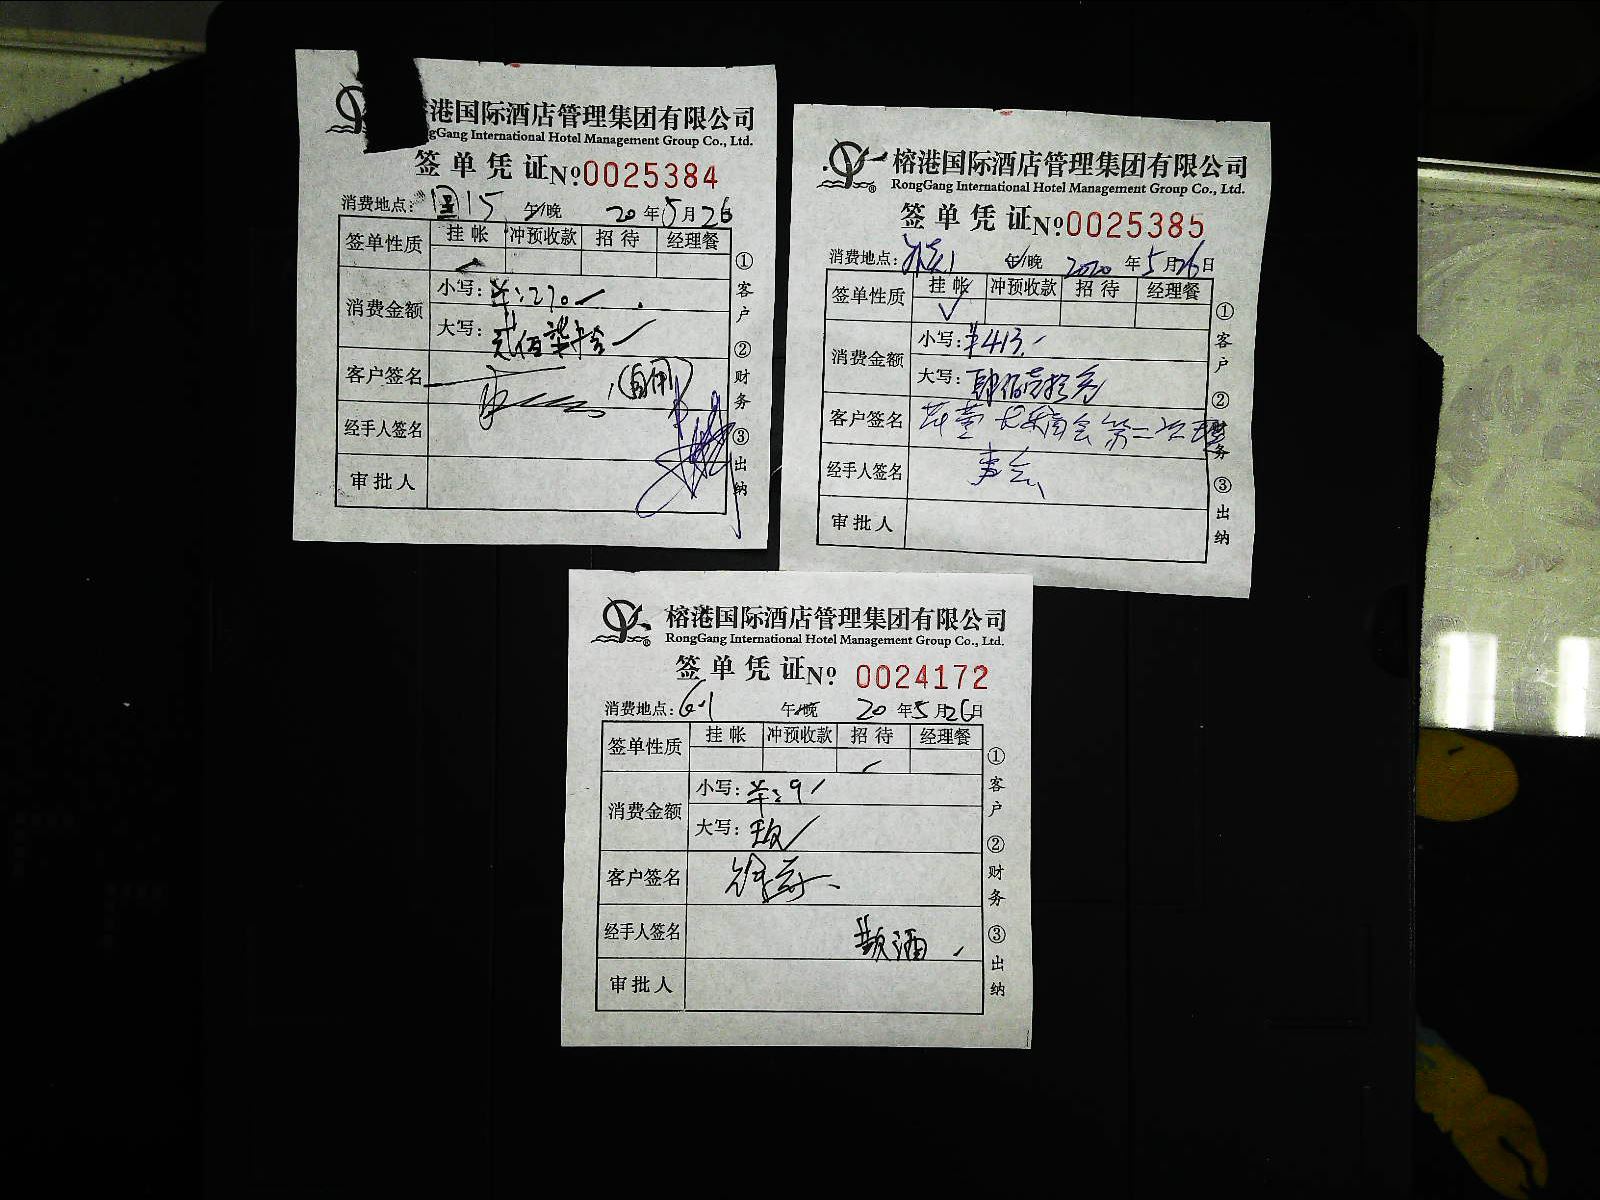 港国际酒店管理集团有限公司
gGang International Hotel Management Group Co., Ltd.
签单凭证 № 0025384
消费地点: 国15 午/晚 20年5月26日
签单性质 挂帐 冲预收款 招待 经理餐
消费金额
小写: ¥:270
大写: 贰佰柒拾
客户签名 (自用)
经手人签名
审批人
①客户 ②财务 ③出纳
榕港国际酒店管理集团有限公司
RongGang International Hotel Management Group Co., Ltd.
签单凭证 № 0025385
消费地点: 午/晚 2020年5月26日
签单性质 挂帐 冲预收款 招待 经理餐
消费金额
小写: ¥413.
大写: 肆佰壹拾叁
客户签名 长乐商会第二次理
经手人签名 事会
审批人
①客户 ②财务 ③出纳
榕港国际酒店管理集团有限公司
RongGang International Hotel Management Group Co., Ltd.
签单凭证 № 0024172
消费地点: 午/晚 20年5月26日
签单性质 挂帐 冲预收款 招待 经理餐
消费金额
小写: ¥:9
大写: 玖
客户签名
经手人签名
审批人
①客户 ②财务 ③出纳